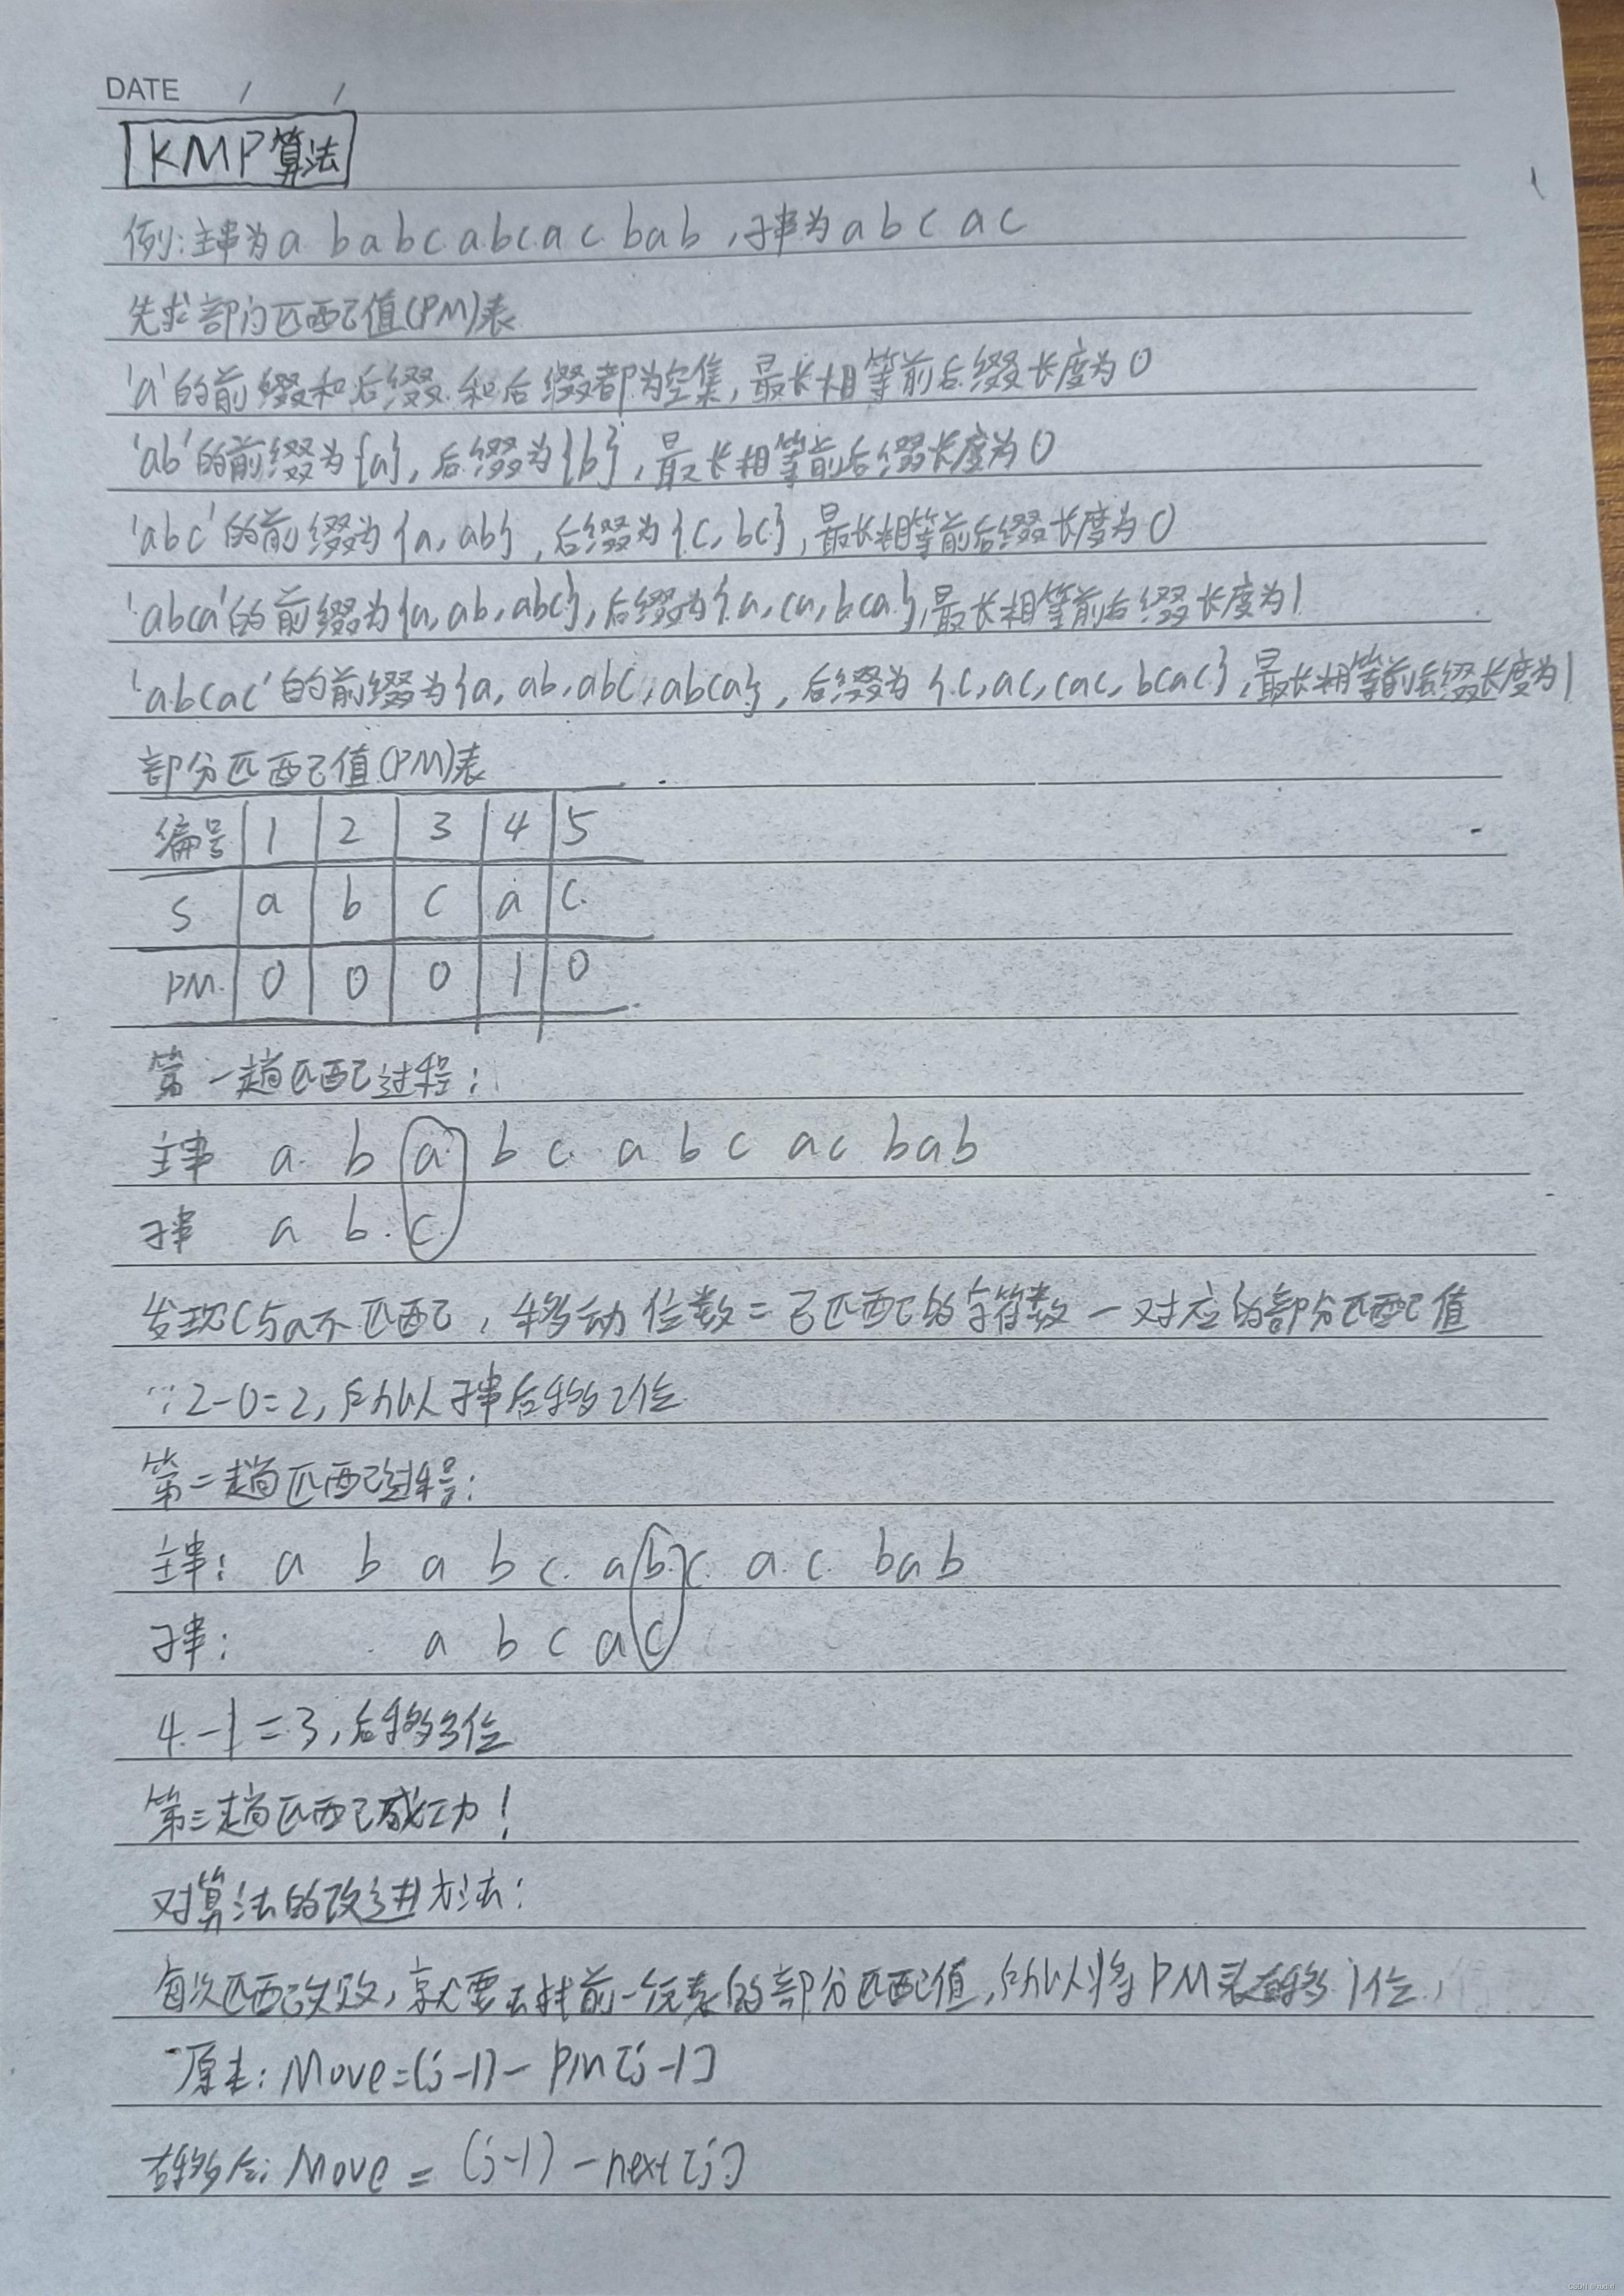 DATE / /
KMP算法
例:主串为a b a b c a b c a c b a b ,子串为 a b c a c
先求部分匹配值(PM)表
'a'的前缀和后缀和后缀都为空集,最长相等前后缀长度为0
'ab'的前缀为{a},后缀为{b},最长相等前后缀长度为0
'abc'的前缀为{a,ab},后缀为{c,bc},最长相等前后缀长度为0
'abca'的前缀为{a,ab,abc},后缀为{a,ca,bca},最长相等前后缀长度为1
'abcac'的前缀为{a,ab,abc,abca},后缀为{c,ac,cac,bcac},最长相等前后缀长度为1
部分匹配值(PM)表
编号 1 2 3 4 5
S a b c a c
PM 0 0 0 1 0
第一趟匹配过程:
主串 a b a b c a b c a c b a b
子串 a b c
发现c与a不匹配,移动位数=已匹配的字符数-对应的部分匹配值
∵2-0=2,所以子串后移2位
第二趟匹配过程:
主串: a b a b c a b c a c b a b
子串: a b c a c
4-1=3,后移3位
第三趟匹配成功!
对算法的改进方法:
每次匹配失败,就要去找前一个元素的部分匹配值,所以将PM表右移1位,
原来: Move=(j-1)-PM[j-1]
右移后: Move=(j-1)-next[j]